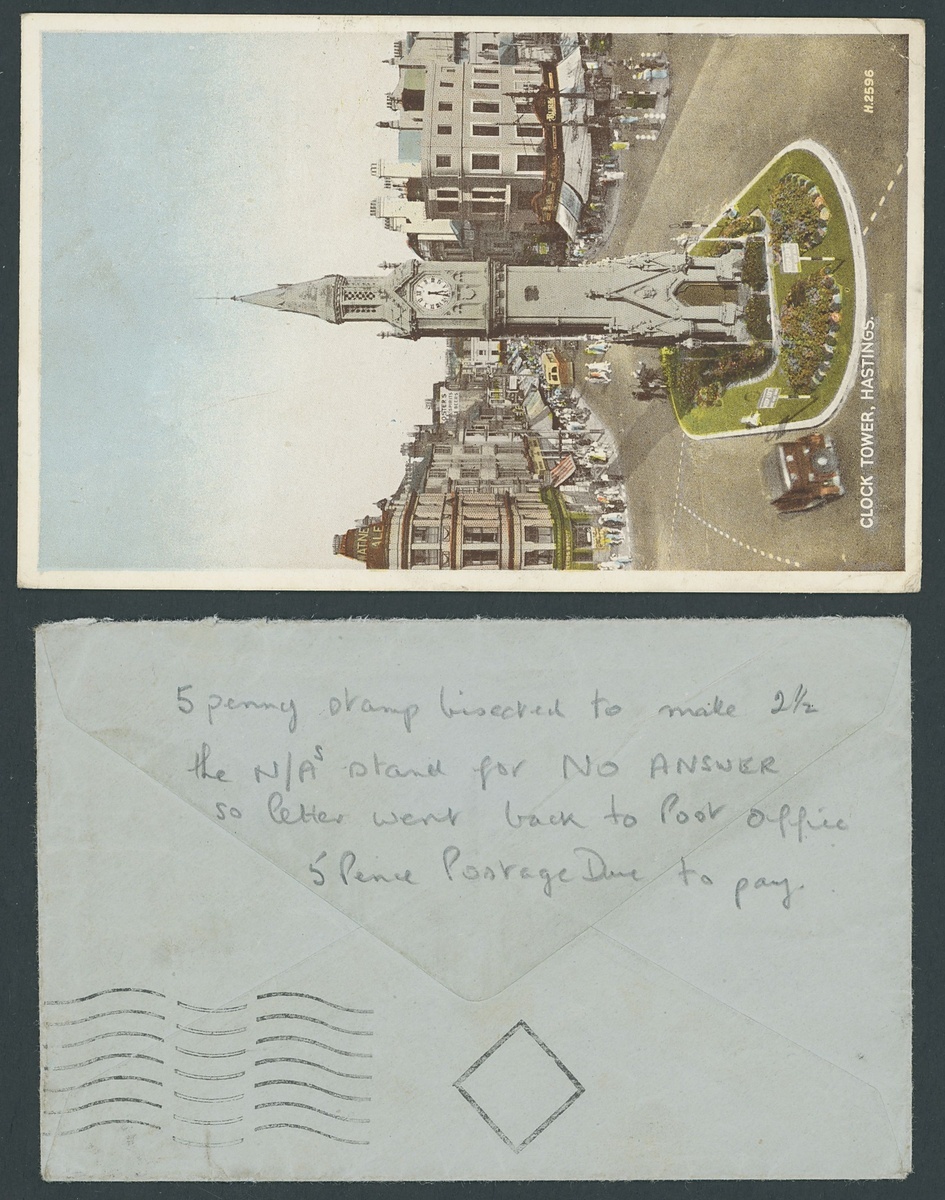 H.2596
CLOCK TOWER, HASTINGS.
5 penny stamp bisected to make 2½
the N/Aˢ stand for NO ANSWER
so letter went back to Post Office
5 Pence Postage Due to pay.